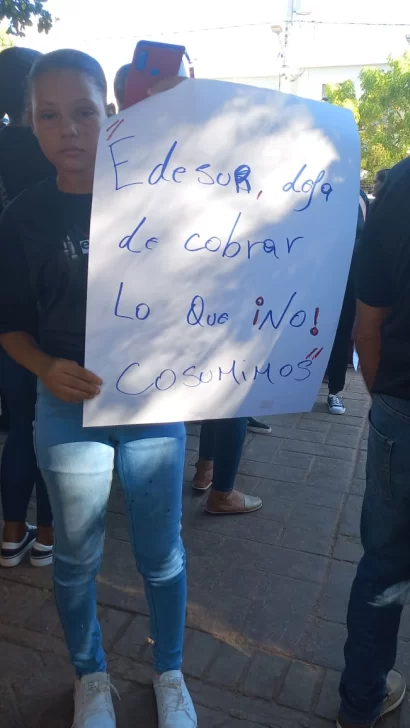 "Edesur, deja
de cobrar
Lo Que ¡No!
Cosumimos"